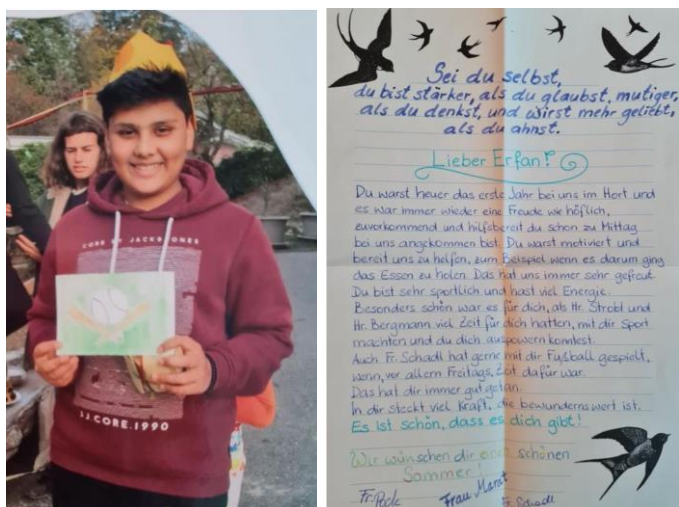 CORE BY JACK&JONES
JJ.CORE.1990
Sei du selbst,
du bist stärker, als du glaubst, mutiger,
als du denkst, und wirst mehr geliebt,
als du ahnst.
Lieber Erfan!
Du warst heuer das erste Jahr bei uns im Hort und
es war immer wieder eine Freude wie höflich,
zuvorkommend und hilfsbereit du schon zu Mittag
bei uns angekommen bist. Du warst motiviert und
bereit uns zu helfen, zum Beispiel wenn es darum ging
das Essen zu holen. Das hat uns immer sehr gefreut.
Du bist sehr sportlich und hast viel Energie.
Besonders schön war es für dich, als Hr. Strobl und
Hr. Bergmann viel Zeit für dich hatten, mit dir Sport
machten und du dich auspowern konntest.
Auch Fr. Schadl hat gerne mit dir Fußball gespielt,
wenn, vor allem Freitags, Zeit dafür war.
Das hat dir immer gut getan.
In dir steckt viel Kraft, die bewundernswert ist.
Es ist schön, dass es dich gibt!
Wir wünschen dir einen schönen
Sommer!
Fr. Frau Fr. Schadl